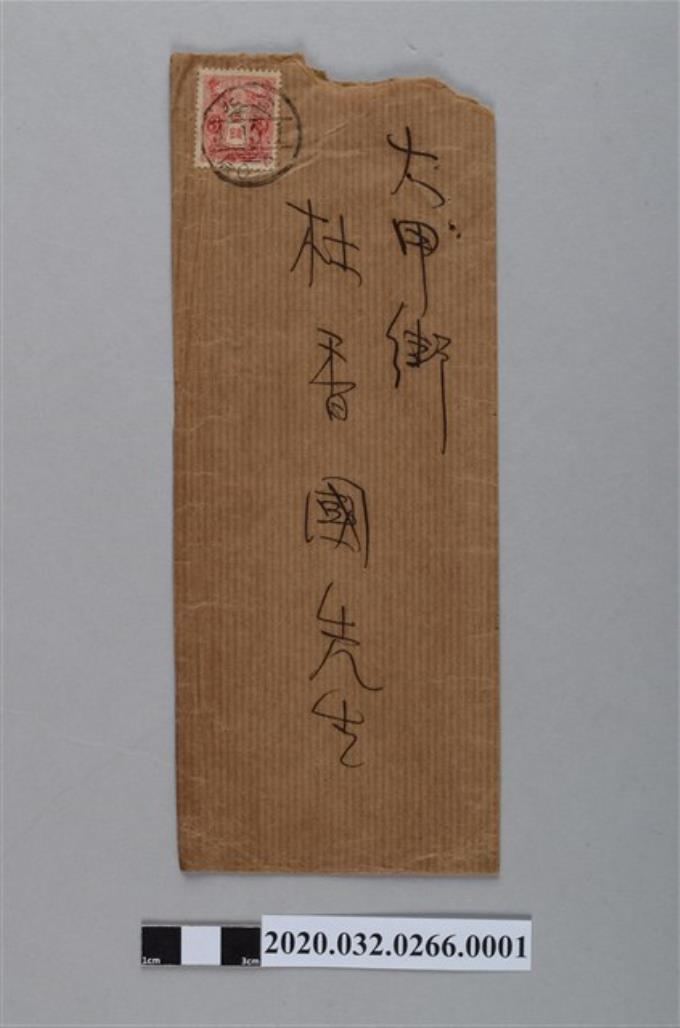 大甲街
杜香國先生
1cm
3cm
2020.032.0266.0001